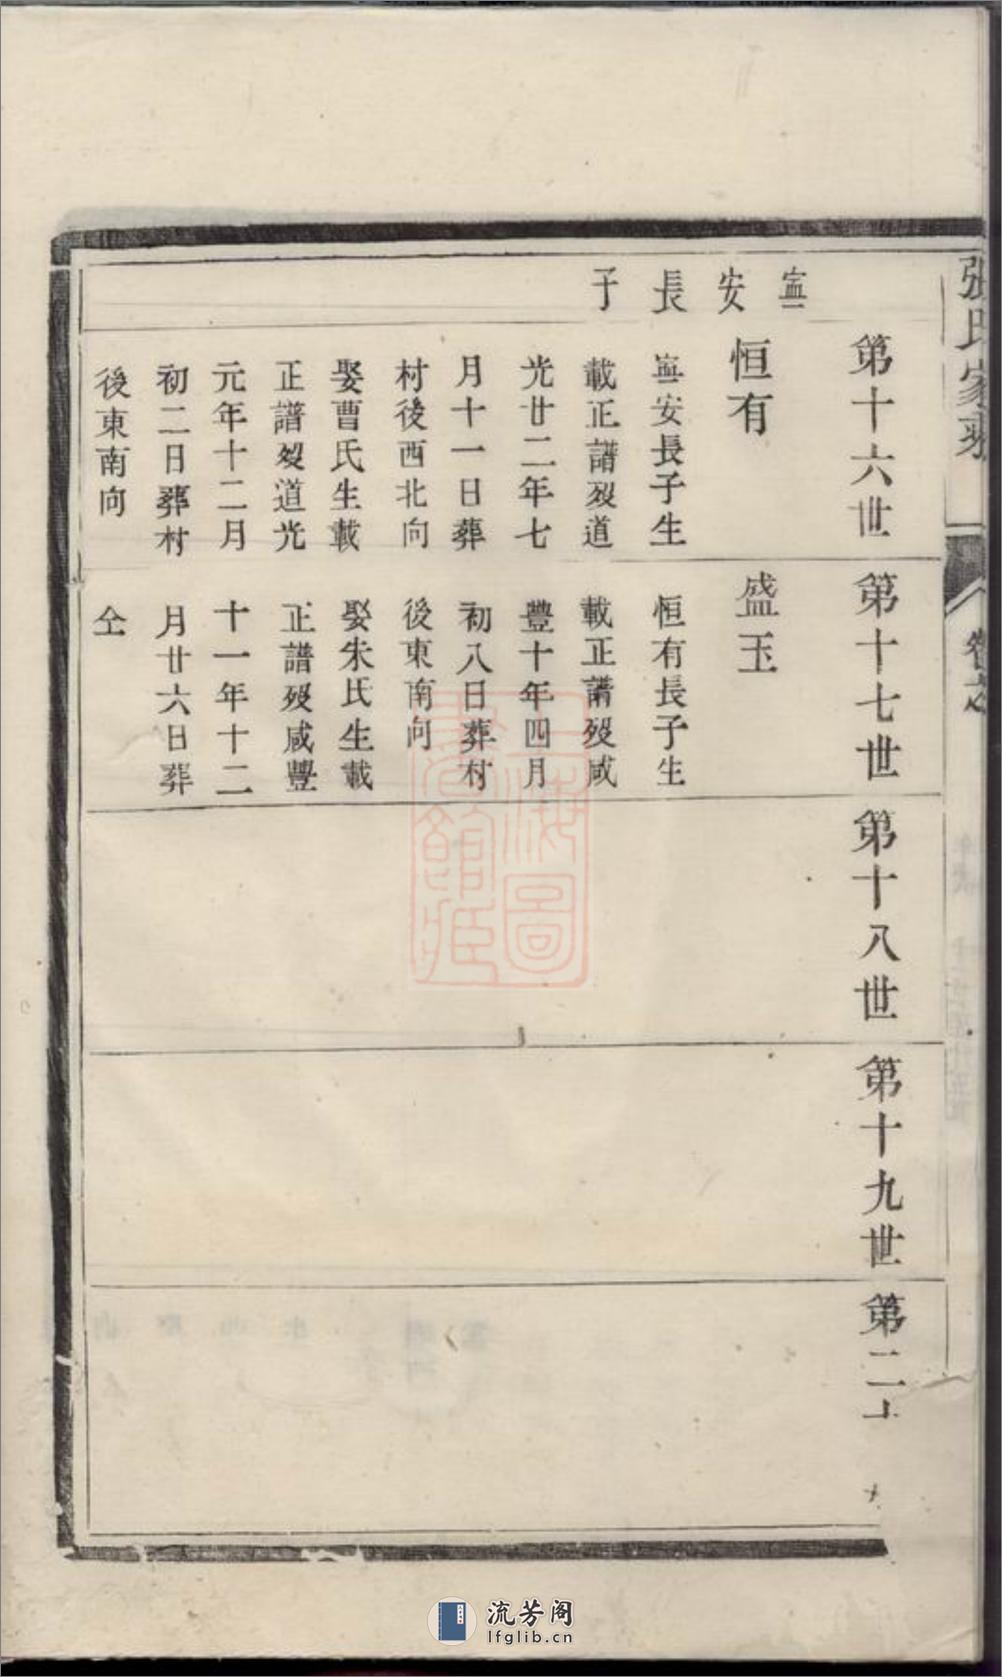 張氏家乘
卷之
寧安長子
第十六世
恒有
寧安長子生
載正譜歿道
光廿二年七
月十一日葬
村後西北向
娶曹氏生載
正譜歿道光
元年十二月
初二日葬村
後東南向
第十七世
盛玉
恒有長子生
載正譜歿咸
豐十年四月
初八日葬村
後東南向
娶朱氏生載
正譜歿咸豐
十一年十二
月廿六日葬
仝
第十八世
第十九世
第二十
上海圖
書館藏
流芳阁
lfglib.cn